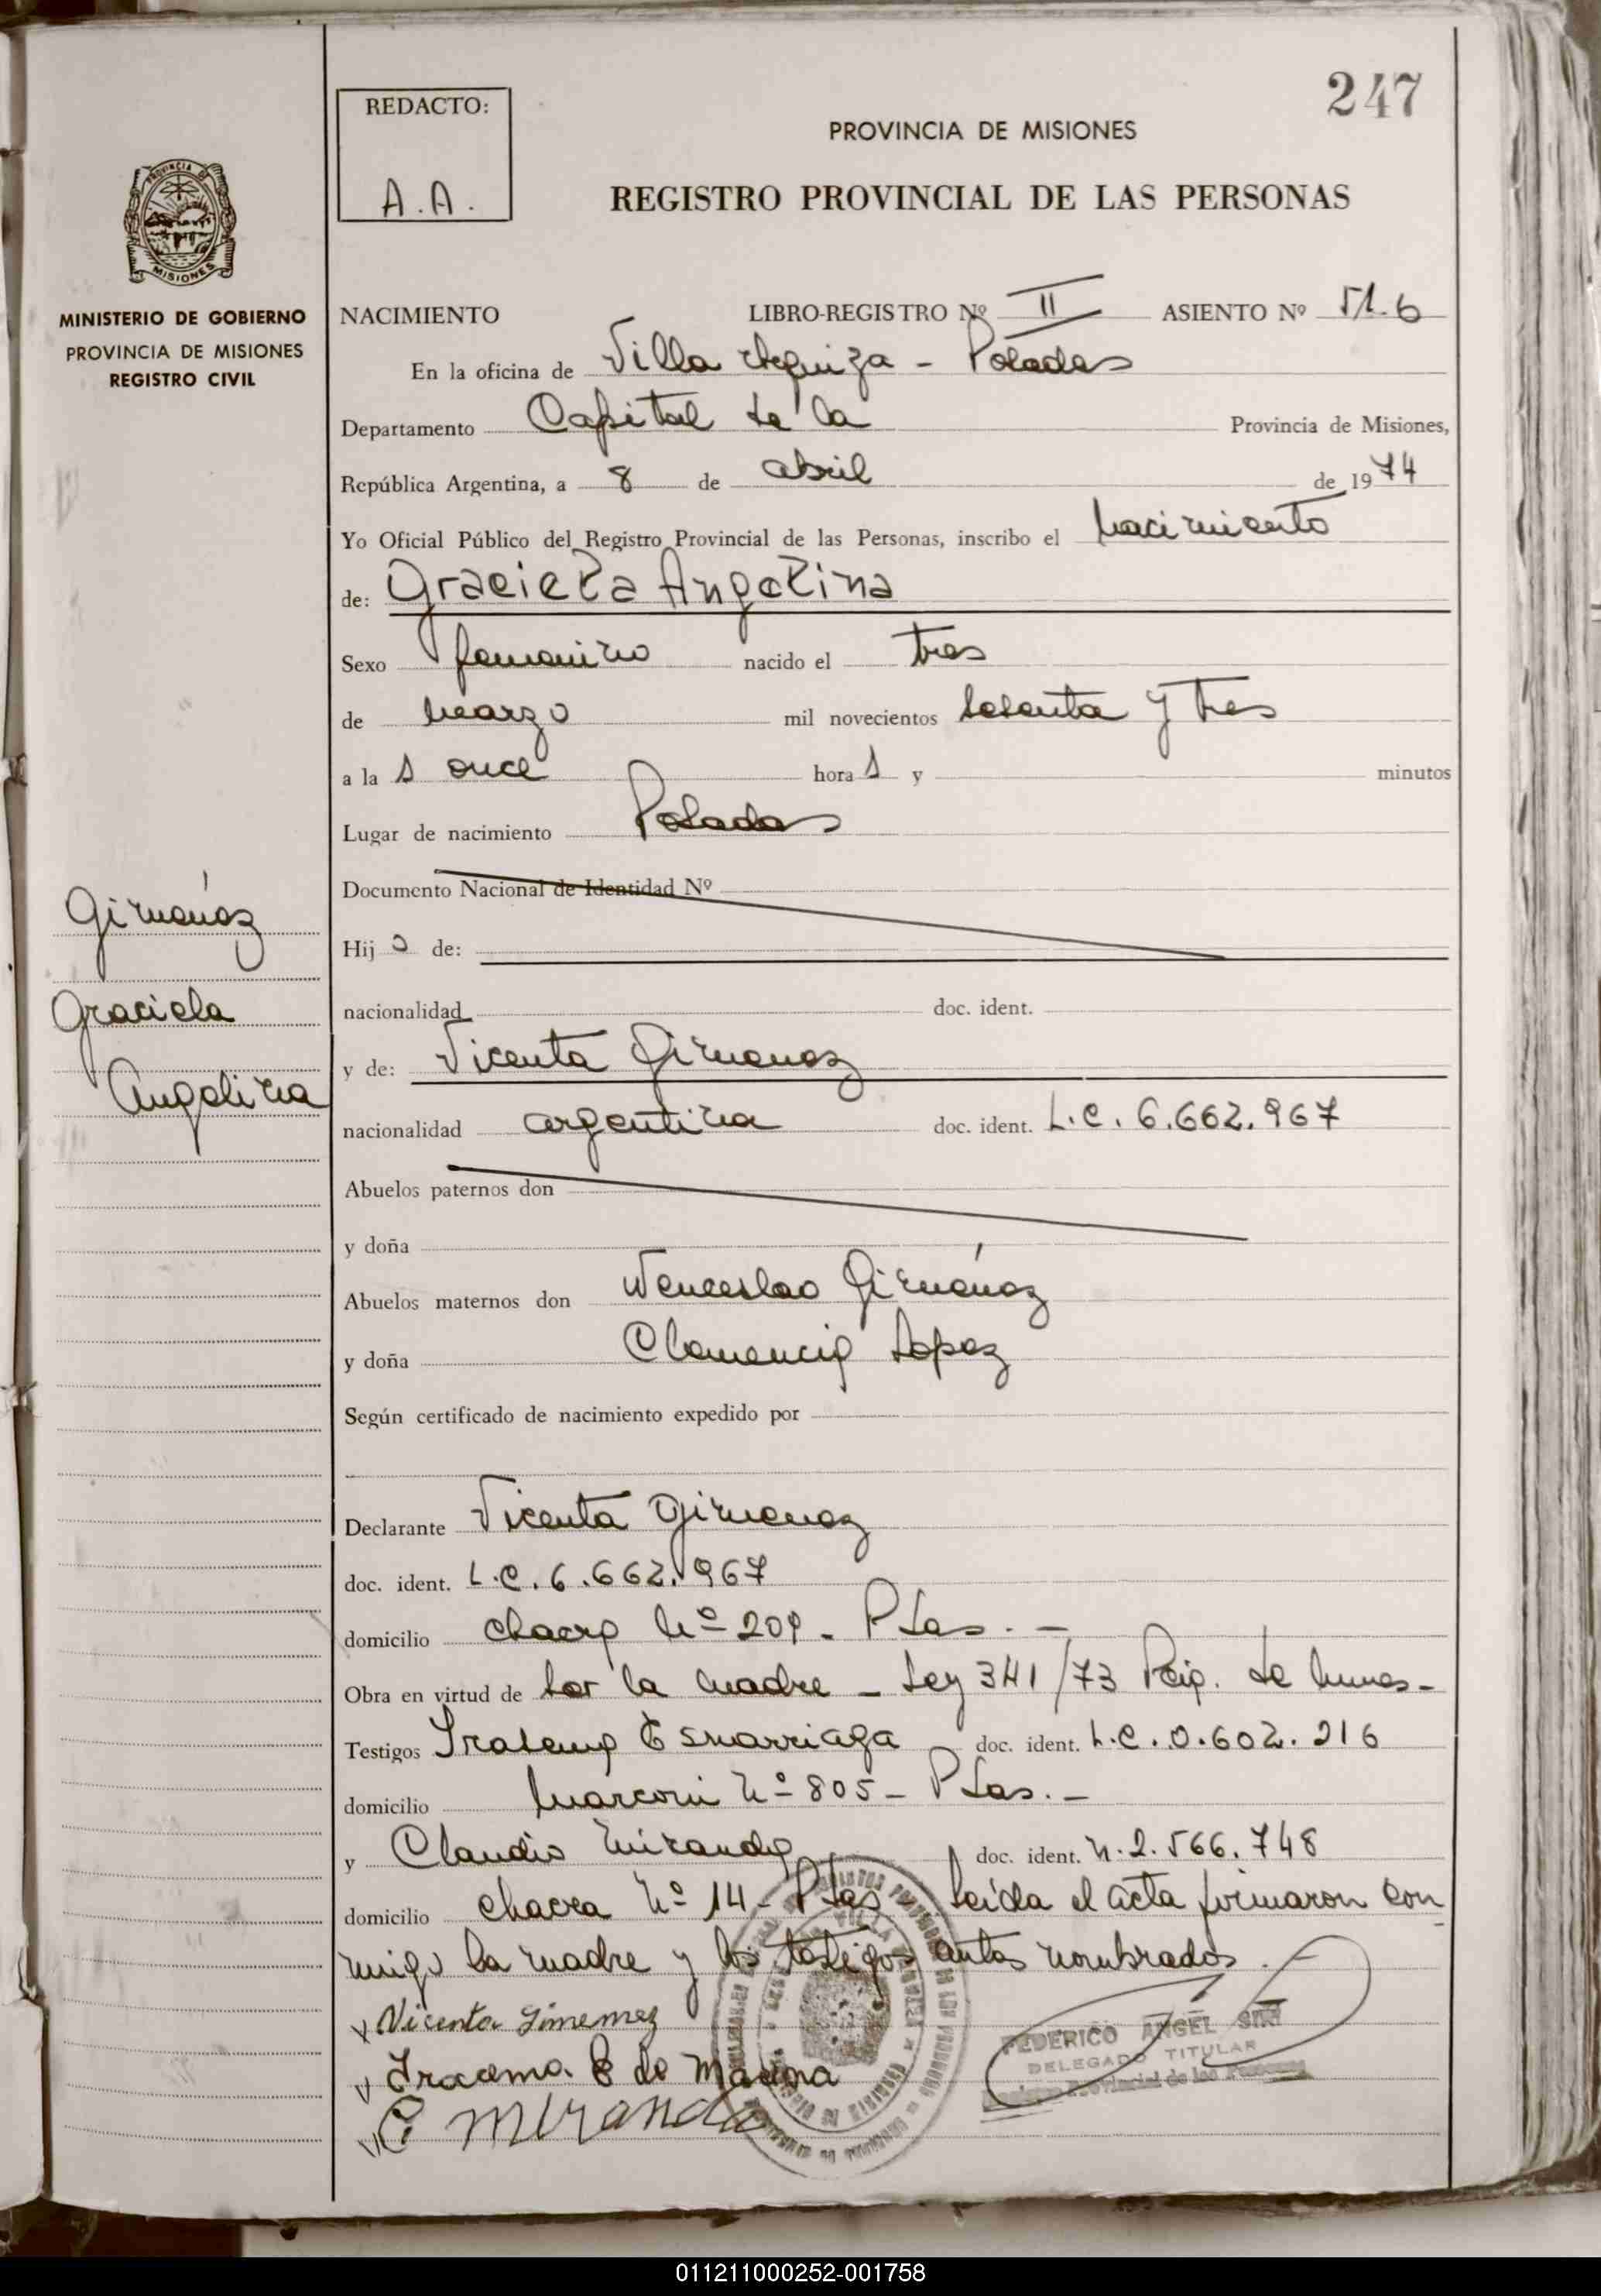 247
REDACTO:
A.A.
PROVINCIA DE MISIONES
REGISTRO PROVINCIAL DE LAS PERSONAS
PROVINCIA
MISIONES
MINISTERIO DE GOBIERNO
PROVINCIA DE MISIONES
REGISTRO CIVIL
NACIMIENTO LIBRO-REGISTRO Nº II ASIENTO Nº 516
En la oficina de Villa Urquiza - Posadas
Departamento Capital de la Provincia de Misiones,
República Argentina, a 8 de abril de 1974
Yo Oficial Público del Registro Provincial de las Personas, inscribo el nacimiento
de: Graciela Angelina
Sexo femenino nacido el tres
de marzo mil novecientos sesenta y tres
a la s once hora s y minutos
Lugar de nacimiento Posadas
Documento Nacional de Identidad Nº
Hij a de:
nacionalidad doc. ident.
y de: Vicenta Gimenez
nacionalidad argentina doc. ident. L.C. 6.662.967
Abuelos paternos don
y doña
Abuelos maternos don Wenceslao Giménez
y doña Clemencia Lopez
Según certificado de nacimiento expedido por
Declarante Vicenta Gimenez
doc. ident. L.C. 6.662.967
domicilio chacra Nº 209 - Psas. -
Obra en virtud de ser la madre - Ley 341/73 Reip. de
Testigos Irasema E doc. ident. L.C. 0.602.216
domicilio Marconi Nº 805 - Psas. -
y Claudio Miranda doc. ident. N. 2.566.748
domicilio chacra Nº 14 - Psas - Leida el acta firmaron con
migo la madre y los testigos antes nombrados.
Vicenta Jimemez
Iracema E de
C Miranda
FEDERICO ANGEL
DELEGADO TITULAR
Registro Provincial de las Personas
Gimenéz
Graciela
Angelina
011211000252-001758